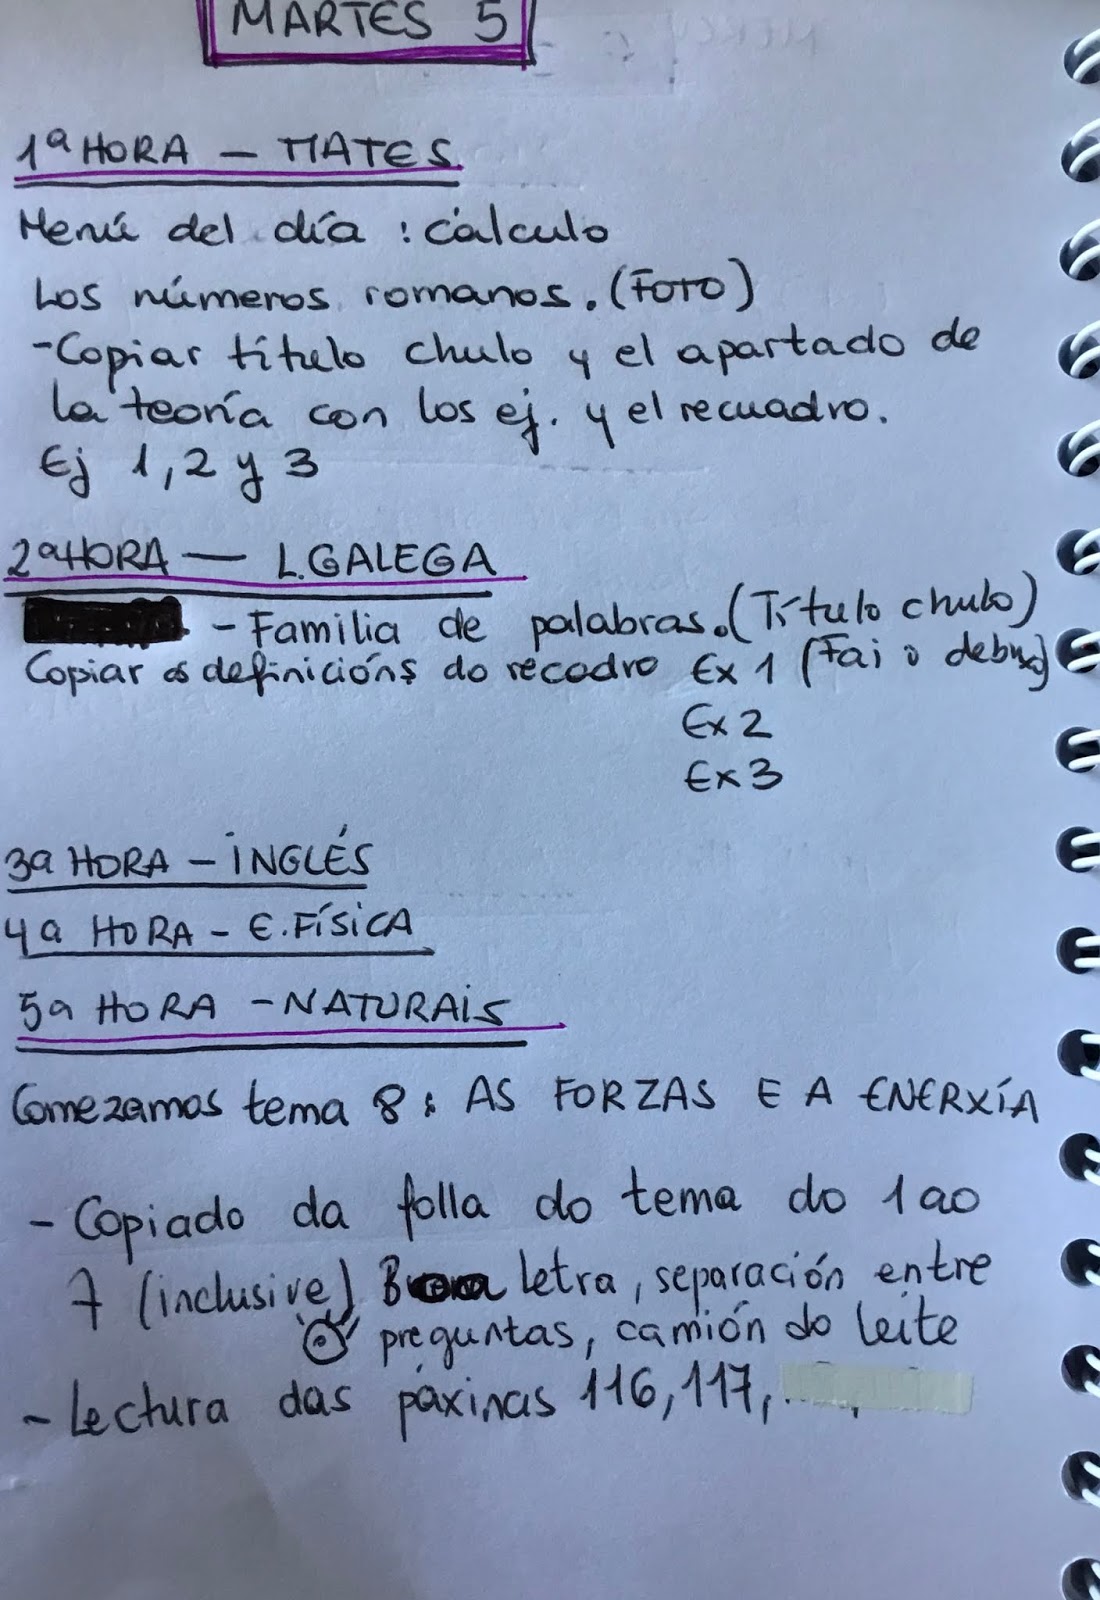 MARTES 5
1ª HORA — MATES
Menú del día : cálculo
Los números romanos. (FOTO)
-Copiar título chulo y el apartado de
la teoría con los ej. y el recuadro.
Ej 1, 2 y 3
2ª HORA — L.GALEGA
- Familia de palabras. (Título chulo)
Copiar as definicións do recadro Ex 1 (Fai o debuxo)
Ex 2
Ex 3
3ª HORA - INGLÉS
4ª HORA - E. FÍSICA
5ª HORA - NATURAIS
Comezamos tema 8: AS FORZAS E A ENERXÍA
- Copiado da folla do tema do 1 ao
7 (inclusive) Boa letra, separación entre
preguntas, camión do leite
- Lectura das páxinas 116, 117,